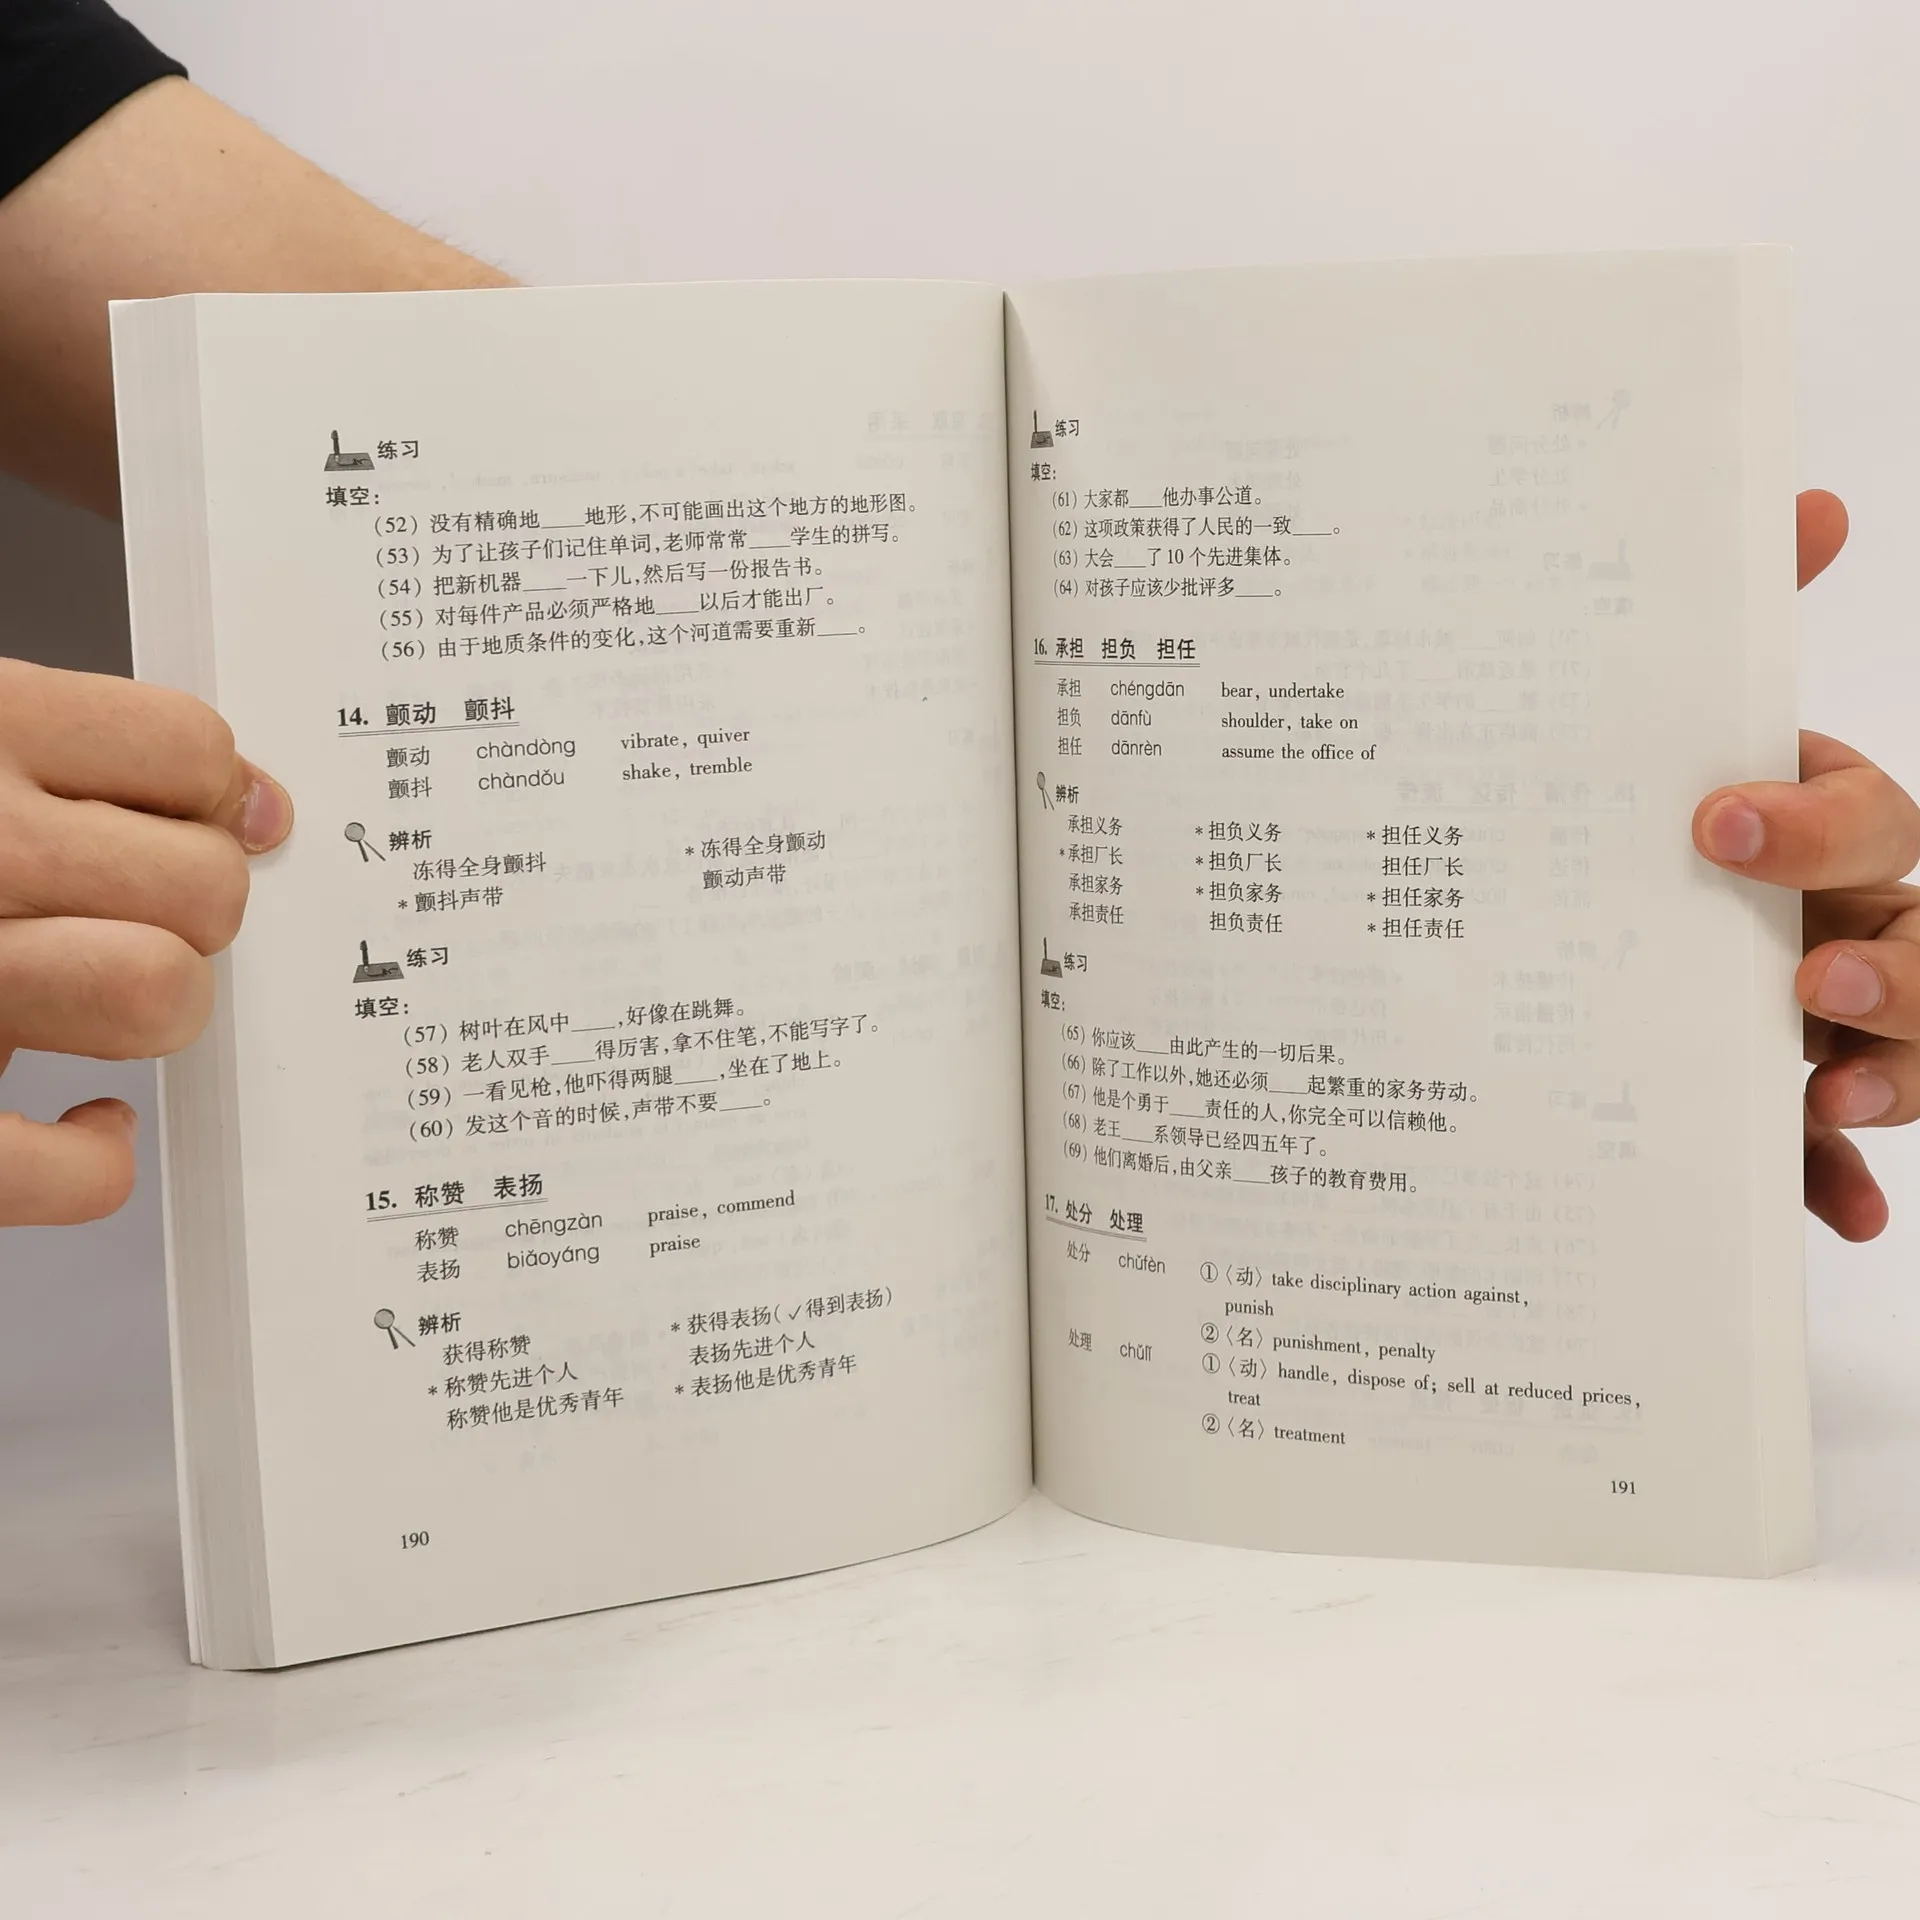 练习
填空：
（52）没有精确地____地形，不可能画出这个地方的地形图。
（53）为了让孩子们记住单词，老师常常____学生的拼写。
（54）把新机器____一下儿，然后写一份报告书。
（55）对每件产品必须严格地____以后才能出厂。
（56）由于地质条件的变化，这个河道需要重新____。
14. 颤动 颤抖
颤动 chàndòng vibrate, quiver
颤抖 chàndǒu shake, tremble
辨析
冻得全身颤抖 *冻得全身颤动
*颤抖声带 颤动声带
练习
填空：
（57）树叶在风中____，好像在跳舞。
（58）老人双手____得厉害，拿不住笔，不能写字了。
（59）一看见枪，他吓得两腿____，坐在了地上。
（60）发这个音的时候，声带不要____。
15. 称赞 表扬
称赞 chēngzàn praise, commend
表扬 biǎoyáng praise
辨析
获得称赞 *获得表扬（✓得到表扬）
*称赞先进个人 表扬先进个人
称赞他是优秀青年 *表扬他是优秀青年
190
练习
填空：
（61）大家都____他办事公道。
（62）这项政策获得了人民的一致____。
（63）大会____了10个先进集体。
（64）对孩子应该少批评多____。
16. 承担 担负 担任
承担 chéngdān bear, undertake
担负 dānfù shoulder, take on
担任 dānrèn assume the office of
辨析
承担义务 *担负义务 *担任义务
*承担厂长 *担负厂长 担任厂长
承担家务 *担负家务 *担任家务
承担责任 担负责任 *担任责任
练习
填空：
（65）你应该____由此产生的一切后果。
（66）除了工作以外，她还必须____起繁重的家务劳动。
（67）他是个勇于____责任的人，你完全可以信赖他。
（68）老王____系领导已经四五年了。
（69）他们离婚后，由父亲____孩子的教育费用。
17. 处分 处理
处分 chǔfèn ①〈动〉take disciplinary action against,
punish
②〈名〉punishment, penalty
处理 chǔlǐ ①〈动〉handle, dispose of; sell at reduced prices,
treat
②〈名〉treatment
191